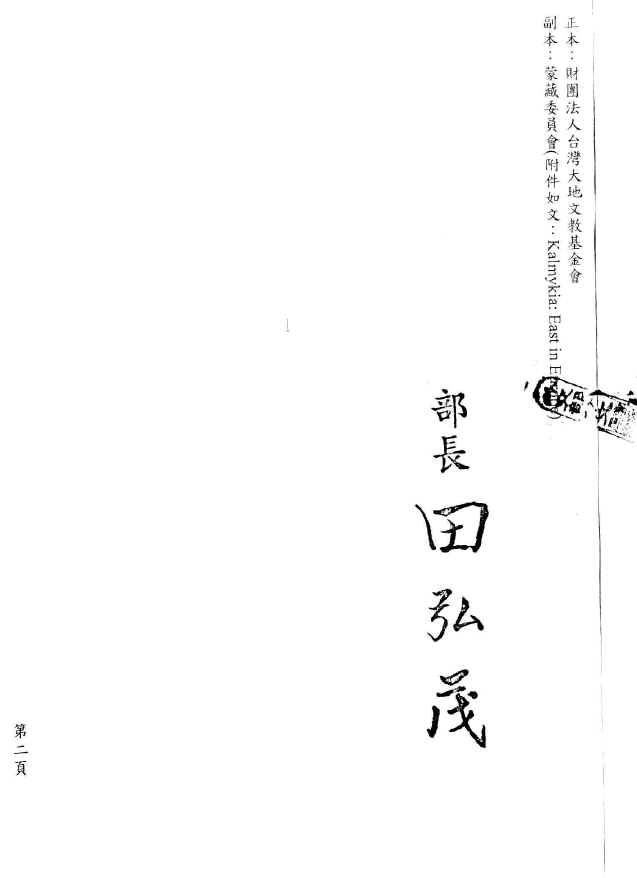 正本：財團法人台灣大地文教基金會
副本：蒙藏委員會(附件如文：Kalmykia: East in
部長 田弘茂
第二頁